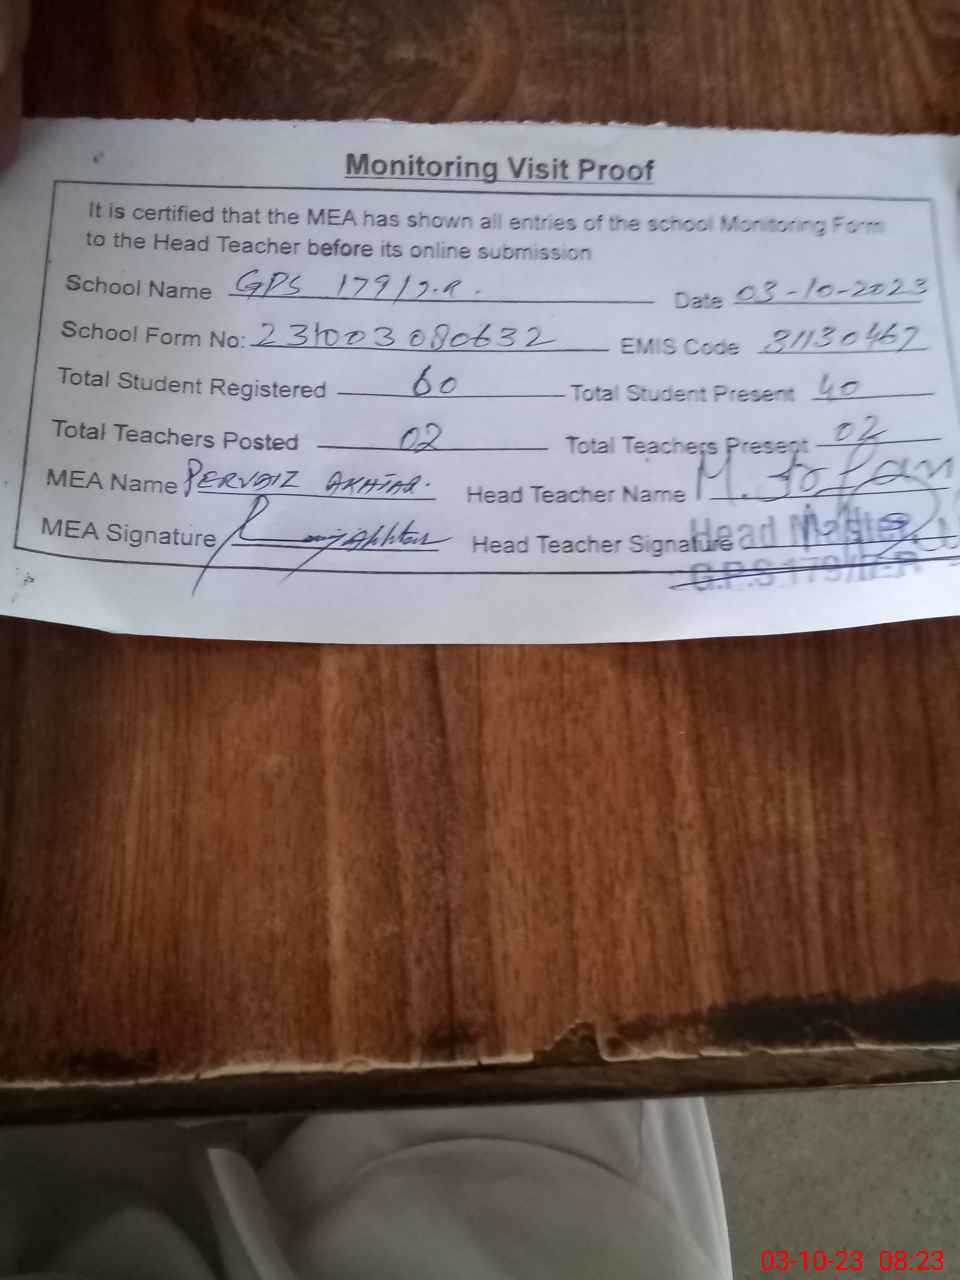 Monitoring Visit Proof
It is certified that the MEA has shown all entries of the school Monitoring Form
to the Head Teacher before its online submission
School Name GPS 179/7.R. Date 03-10-2023
School Form No: 231003080632 EMIS Code 31130467
Total Student Registered 60 Total Student Present 40
Total Teachers Posted 02 Total Teachers Present 02
MEA Name PERVAIZ AKHTAR. Head Teacher Name M.
MEA Signature Head Teacher Signature
Head Master
G.P.S 179/
03-10-23 08:23